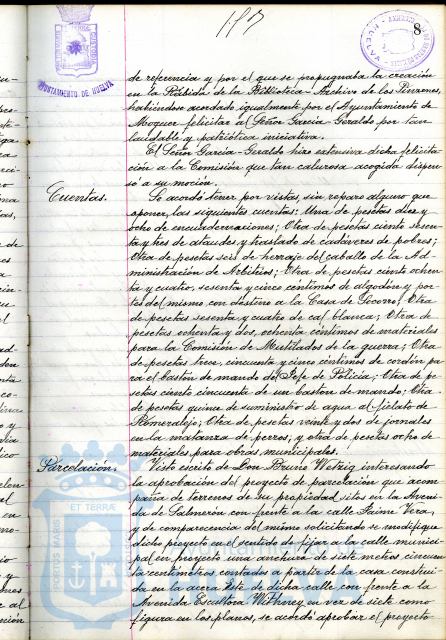 8
AYUNTAMIENTO DE HUELVA
de referencia y por el que se propugnaba la creación
en la Rábida de la Biblioteca-Archivo de los Pinzones,
habiéndose acordado igualmente por el Ayuntamiento de
Moguer felicitar al Señor García-Geraldo por tan
laudable y patriótica iniciativa.
El Señor García-Geraldo hizo extensiva dicha felicita-
ción a la Comisión que tan calurosa acogida dispen-
só a su moción.
Cuentas.
Se acordó tener por vistas, sin reparo alguno que
oponer, las siguientes cuentas: Una de pesetas diez y
ocho de encuadernaciones; Otra de pesetas ciento sesen-
ta y tres de ataudes y traslado de cadáveres de pobres;
Otra de pesetas seis de herraje del caballo de la Ad-
ministración de Arbitrios; Otra de pesetas ciento ochen-
ta y cuatro, sesenta y cinco céntimos de algodón y por-
tes del mismo, con destino a la Casa de Socorro; Otra
de pesetas sesenta y cuatro de cal blanca; Otra de
pesetas ochenta y dos, ochenta céntimos de materiales
para la Comisión de Mutilados de la guerra; Otra
de pesetas trece, cincuenta y cinco céntimos de cordón pa-
ra el bastón de mando del Jefe de Policía; Otra de pe-
setas ciento cincuenta de un bastón de mando; Otra
de pesetas quince de suministro de agua al fielato de
Romeralejo; Otra de pesetas veinte y dos de jornales
en la matanza de perros; y otra de pesetas ocho de
materiales para obras municipales.
Parcelación.
Visto escrito de Don Bruno Wetzig interesando
la aprobación del proyecto de parcelación que acom-
paña de terrenos de su propiedad sitos en la Aveni-
da de Salmerón con frente a la calle Jaime Vera,
y de comparecencia del mismo solicitando se modifique
dicho proyecto en el sentido de fijar a la calle munici-
pal en proyecto una anchura de siete metros cincuen-
ta centímetros contados a partir de la casa construi-
da en la acera Este de dicha calle con frente a la
Avenida Escultora Withney en vez de siete como
figura en los planos, se acordó aprobar el proyecto
PORTUS MARIS ET TERRAE